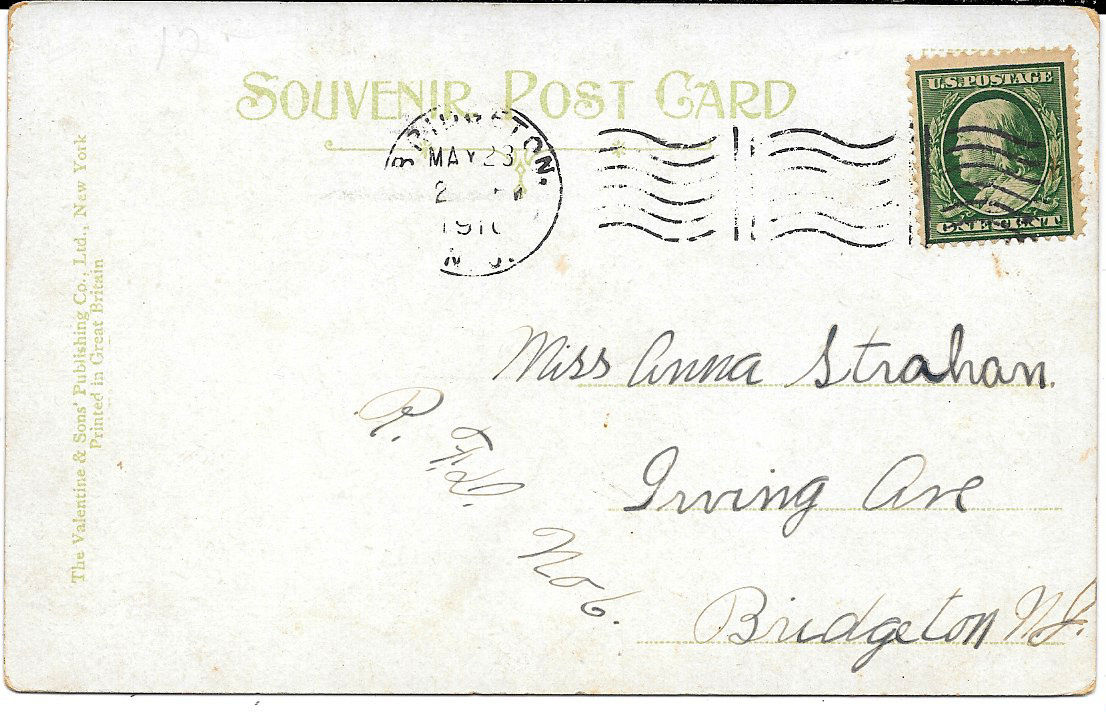 SOUVENIR POST CARD
U.S. POSTAGE
ONE CENT
BRIDGETON,
MAY 23
2 PM
1910
N. J.
The Valentine & Sons' Publishing Co., Ltd., New York
Printed in Great Britain
Miss Anna Strahan.
Irving Ave
Bridgeton N.J.
R. F. D. No 6.